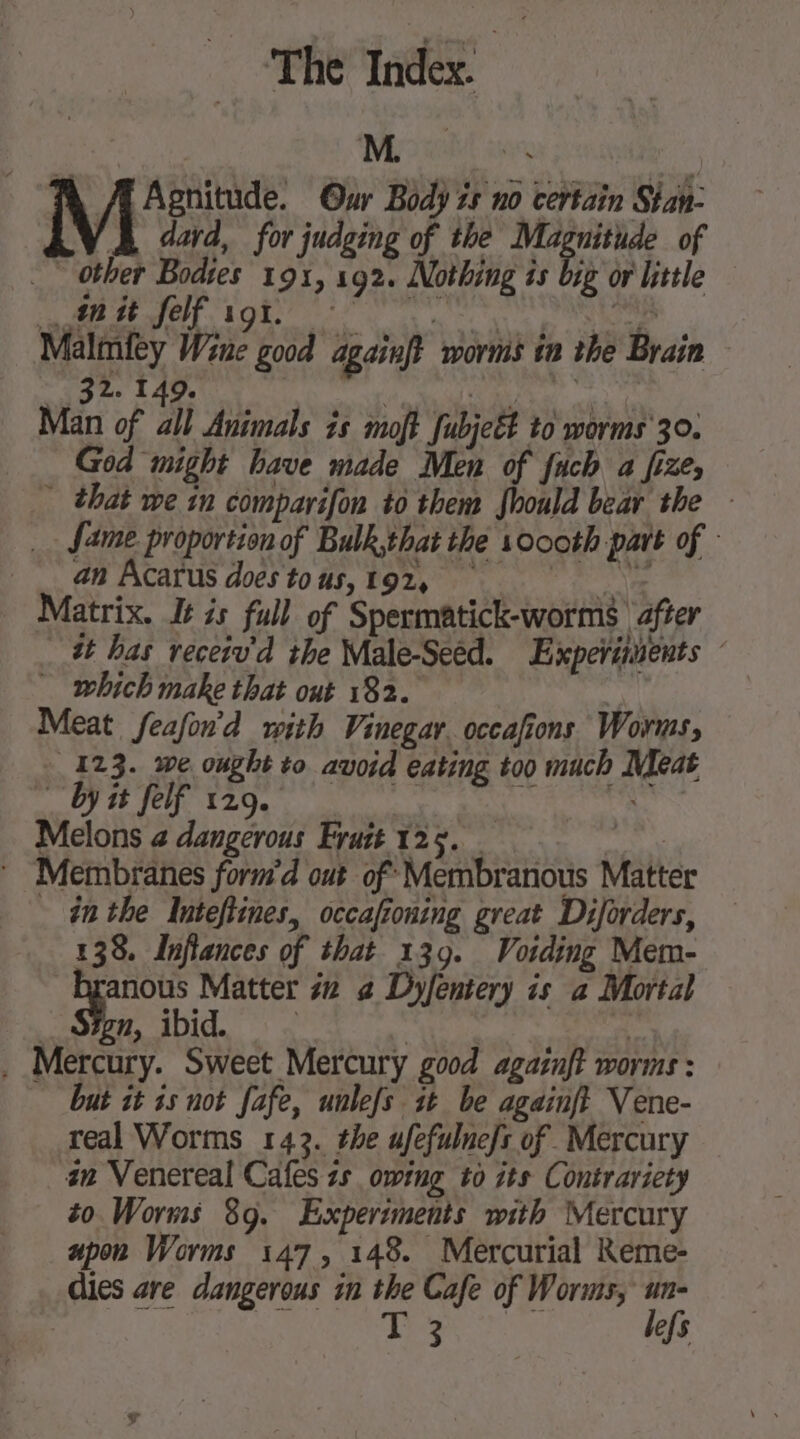 The Index.
M.
MAgnitude. Our Body is no certain Stan-
dard, for judging of the Magnitude of
other Bodies 191, 192. Nothing is big or little
in it ſelf 191.
Malmſey Wine good againſt worms in the Brain
32. 149.
Man of all Animals is moſt ſubject to worms 30.
God might have made Men of ſuch a ſize,
that we in compariſon to them ſhould bear the
ſame proportion of Bulk, that the 1000th part of
an Acarus does to us, 192,
Matrix. It is full of Spermatick-worms after
it has receiv'd the Male-Seed. Experiments
which make that out 182.
Meat ſeaſon'd with Vinegar occaſions Worms,
123. we ought to avoid eating too much Meat
by it ſelf 129.
Melons a dangerous Fruit 125.
Membranes form'd out of Membranous Matter
in the Inteſtines, occaſioning great Diſorders,
138. Inſtances of that 139. Voiding Mem-
branous Matter in a Dyſentery is a Mortal
Sign, ibid.
Mercury. Sweet Mercury good againſt worms:
but it is not ſafe, unleſs it be againſt Vene-
real Worms 143. the uſefulneſs of Mercury
in Venereal Caſes is owing to its Contrariety
to Worms 89. Experiments with Mercury
upon Worms 147, 148. Mercurial Reme-
dies are dangerous in the Caſe of Worms, un-
T 3 leſs